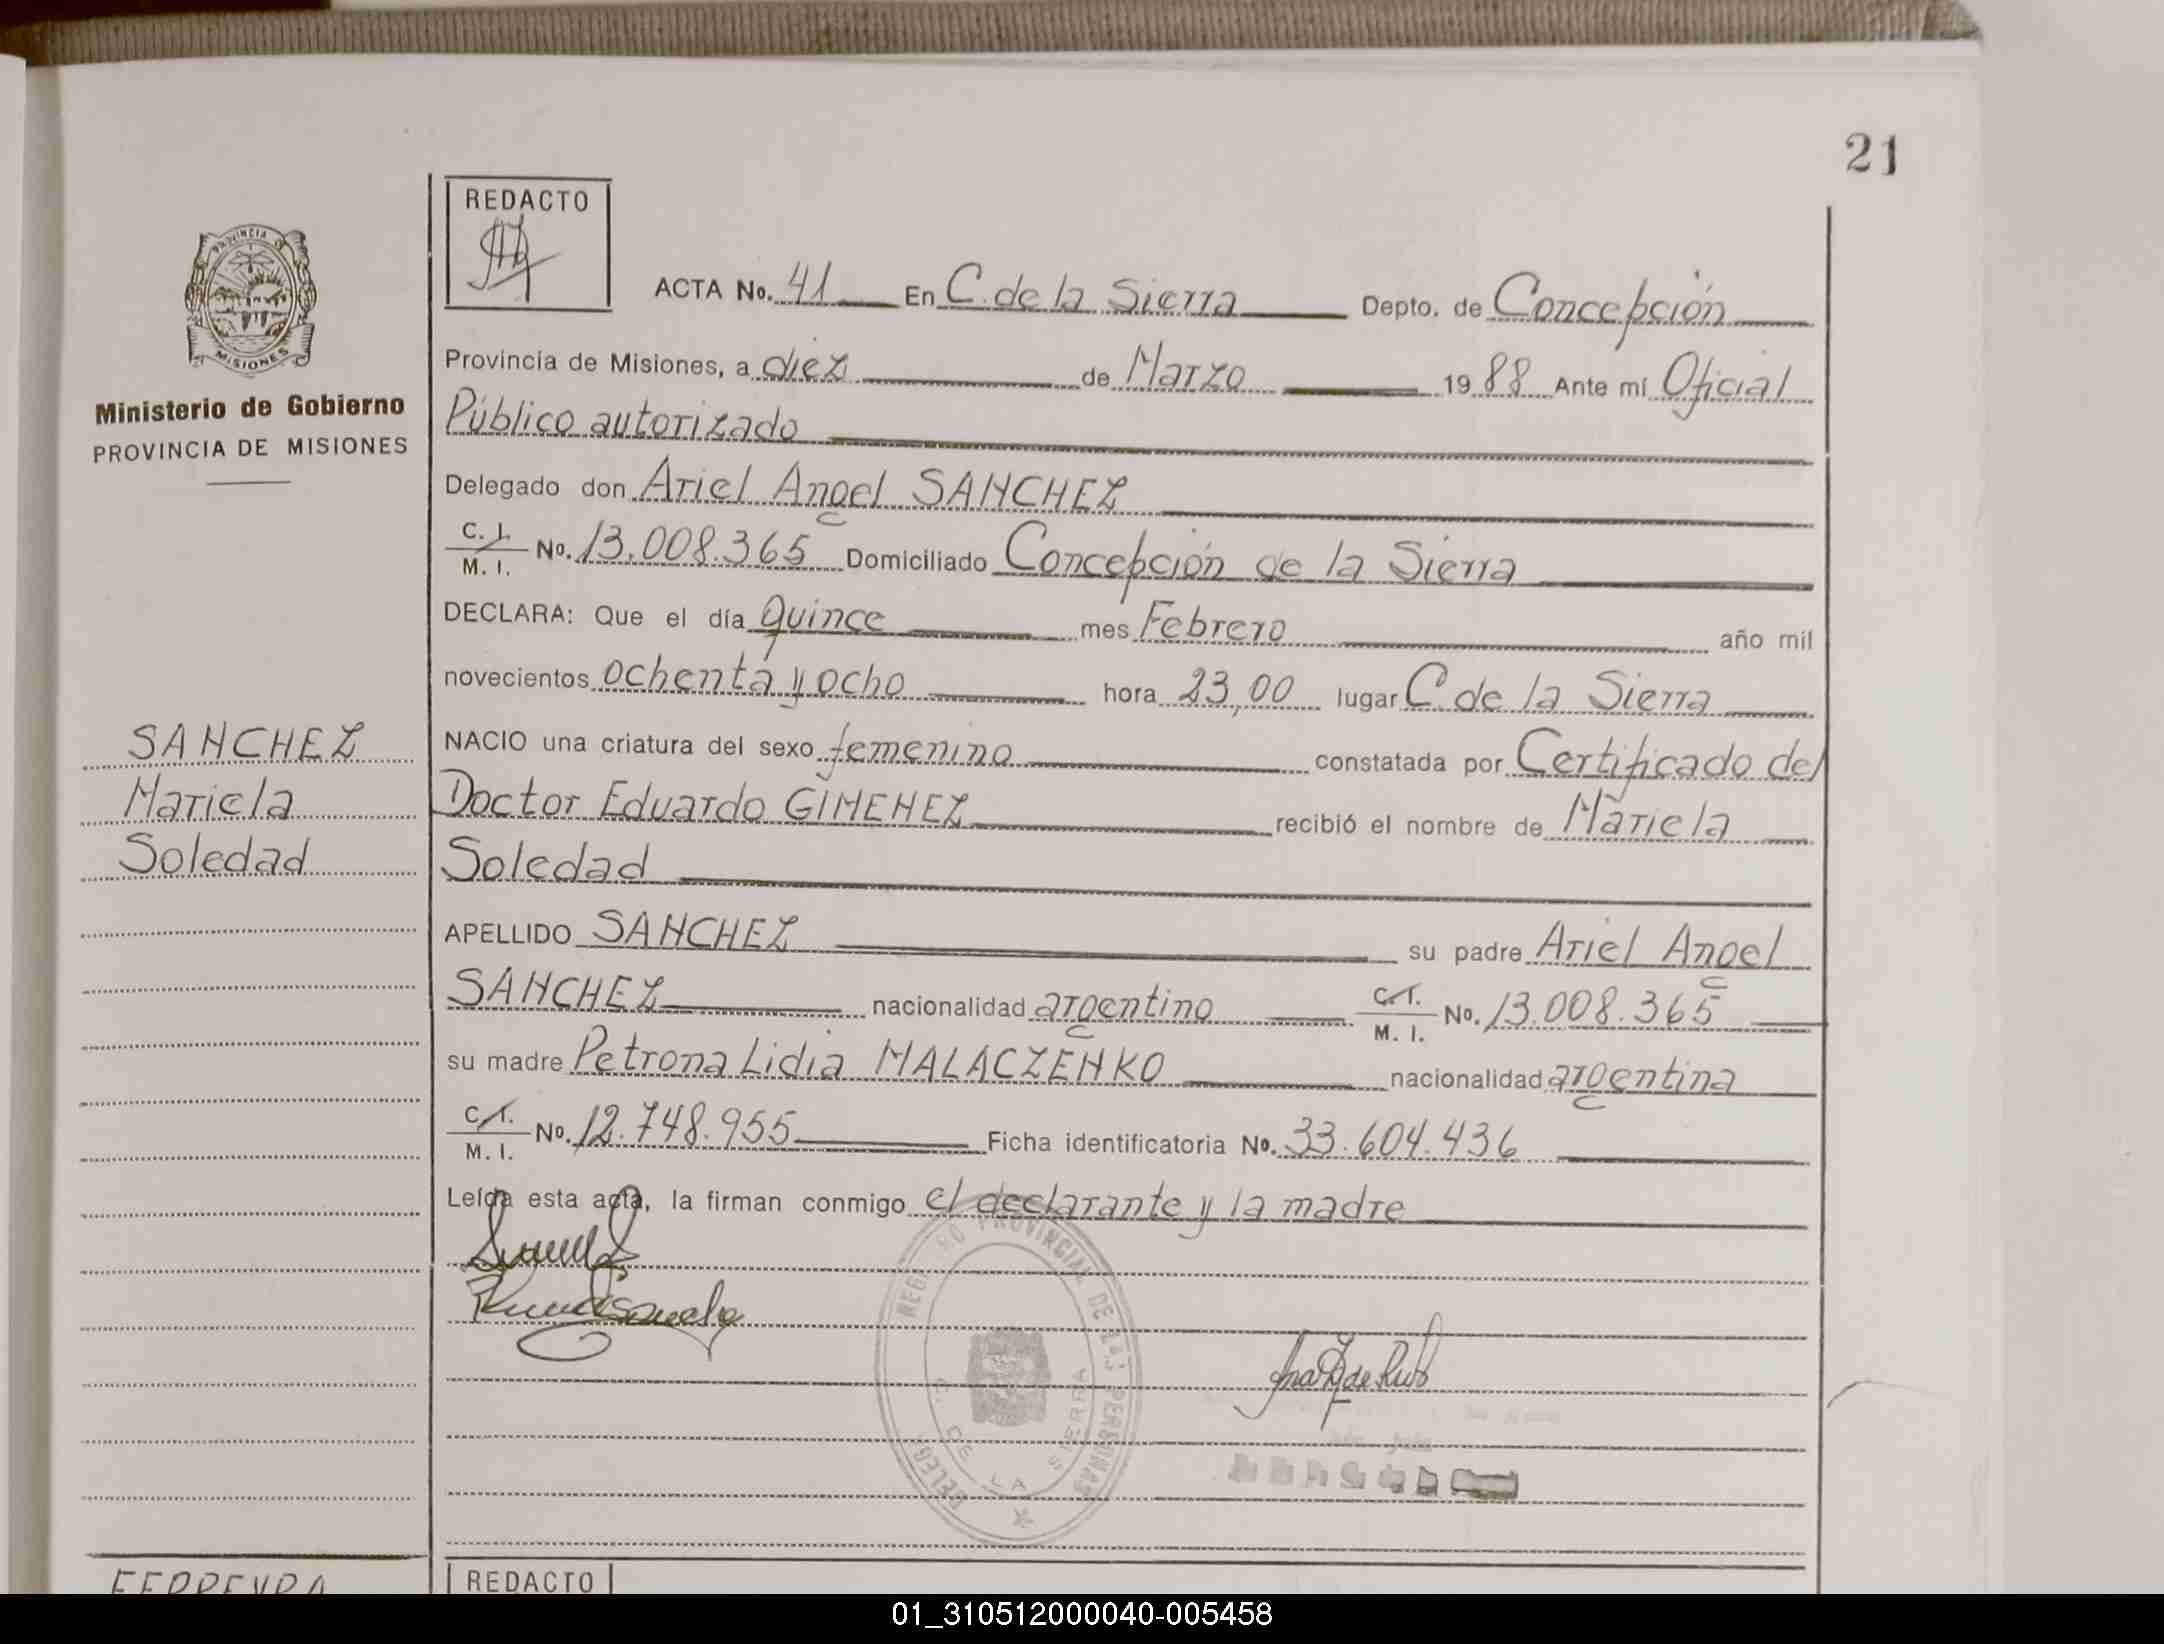 21
REDACTO
PROVINCIA DE
MISIONES
Ministerio de Gobierno
PROVINCIA DE MISIONES
SANCHEZ
Mariela
Soledad
ACTA No. 41 En C. de la Sierra Depto. de Concepción
Provincia de Misiones, a diez de Marzo 1988 Ante mí Oficial
Público autorizado
Delegado don Ariel Angel SANCHEZ
C. I. / M. I. No. 13.008.365 Domiciliado Concepción de la Sierra
DECLARA: Que el día quince mes Febrero año mil
novecientos ochenta y ocho hora 23,00 lugar C. de la Sierra
NACIO una criatura del sexo femenino constatada por Certificado del
Doctor Eduardo GIMENEZ recibió el nombre de Mariela
Soledad
APELLIDO SANCHEZ su padre Ariel Angel
SANCHEZ nacionalidad argentino C. I. / M. I. No. 13.008.365
su madre Petrona Lidia MALACZENKO nacionalidad argentina
C. I. / M. I. No. 12.748.955 Ficha identificatoria No. 33.604.436
Leída esta acta, la firman conmigo el declarante y la madre
REGISTRO PROVINCIAL DE LAS PERSONAS
DELEG. C. DE LA SIERRA
FERREYRA
REDACTO
01_310512000040-005458